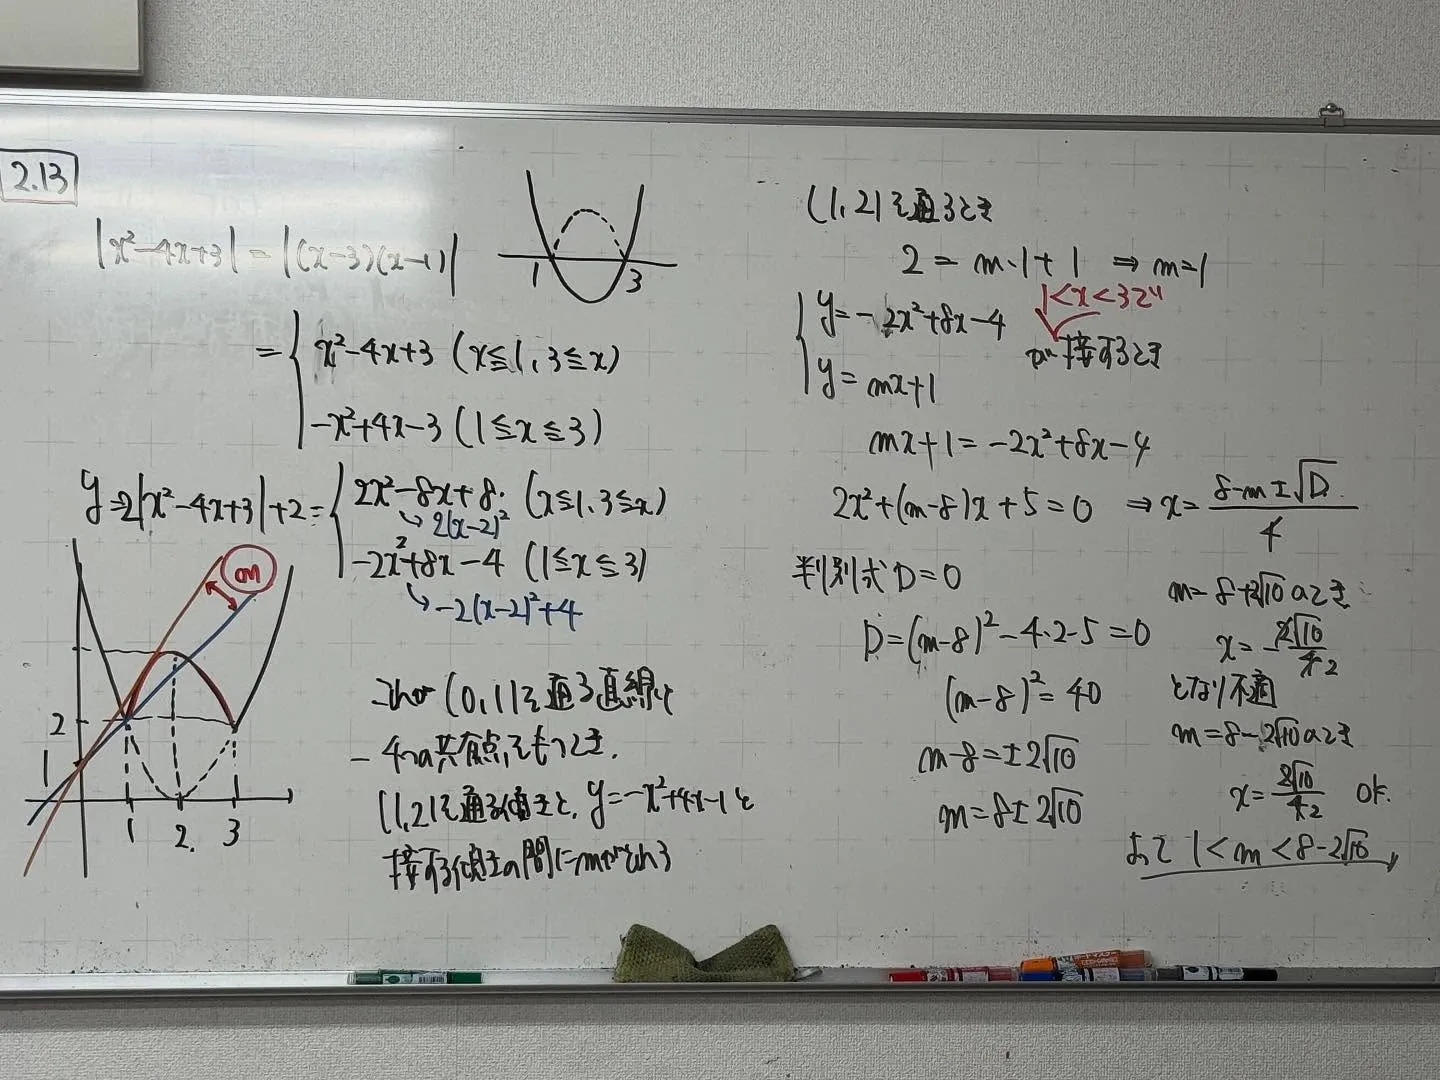 2.13
|x²-4x+3| = |(x-3)(x-1)|
1 3
= { x²-4x+3 (x≦1, 3≦x)
-x²+4x-3 (1≦x≦3)
y=2|x²-4x+3|+2= { 2x²-8x+8. (x≦1, 3≦x)
↳ 2(x-2)²
-2x²+8x-4 (1≦x≦3)
↳ -2(x-2)²+4
m
2
1
1 2. 3
これが (0,1)を通る直線と
4つの共有点をもつとき.
(1,2)を通る傾きと, y=-x²+4x-1と
接する傾きの間にmがとれる
(1,2)を通るとき
2 = m・1+1 ⇒ m=1
{ y=-2x²+8x-4
y= mx+1
1<x<3で
が接するとき
mx+1=-2x²+8x-4
2x²+(m-8)x+5=0 ⇒ x= 8-m±√D / 4
判別式 D=0
D=(m-8)²-4・2・5=0
(m-8)²=40
m-8=±2√10
m=8±2√10
m=8+2√10のとき
x=-2√10 / 4 2
となり不適
m=8-2√10のとき
x= 2√10 / 4 2 OK.
よって 1<m<8-2√10